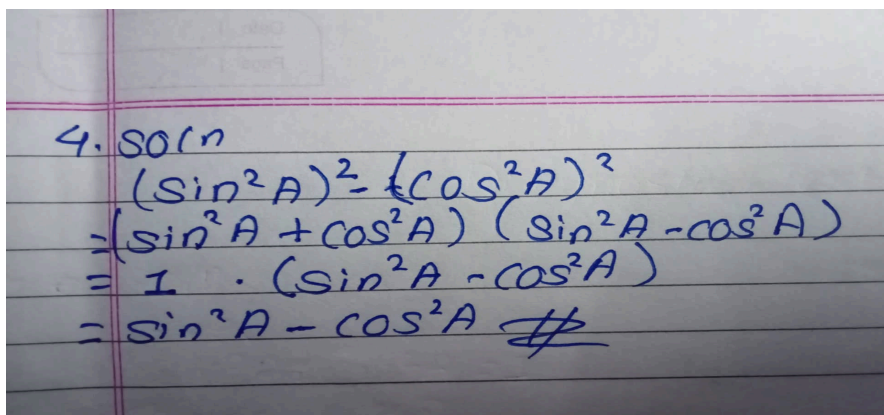 4. soln
(sin²A)² - (cos²A)²
= (sin²A + cos²A) (sin²A - cos²A)
= 1 . (sin²A - cos²A)
= sin²A - cos²A #